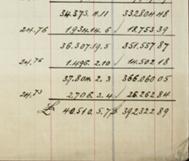 34.373.0.11 332804.18
24.76 1934.14.6 18.753.39
36.307.19.5 351.557.87
24.75 1.496.2.10 14.502.18
37.804.2.3 366.060.05
24.73 2706.3.4 26.262.84
£ 40.510.5.7 392322.89